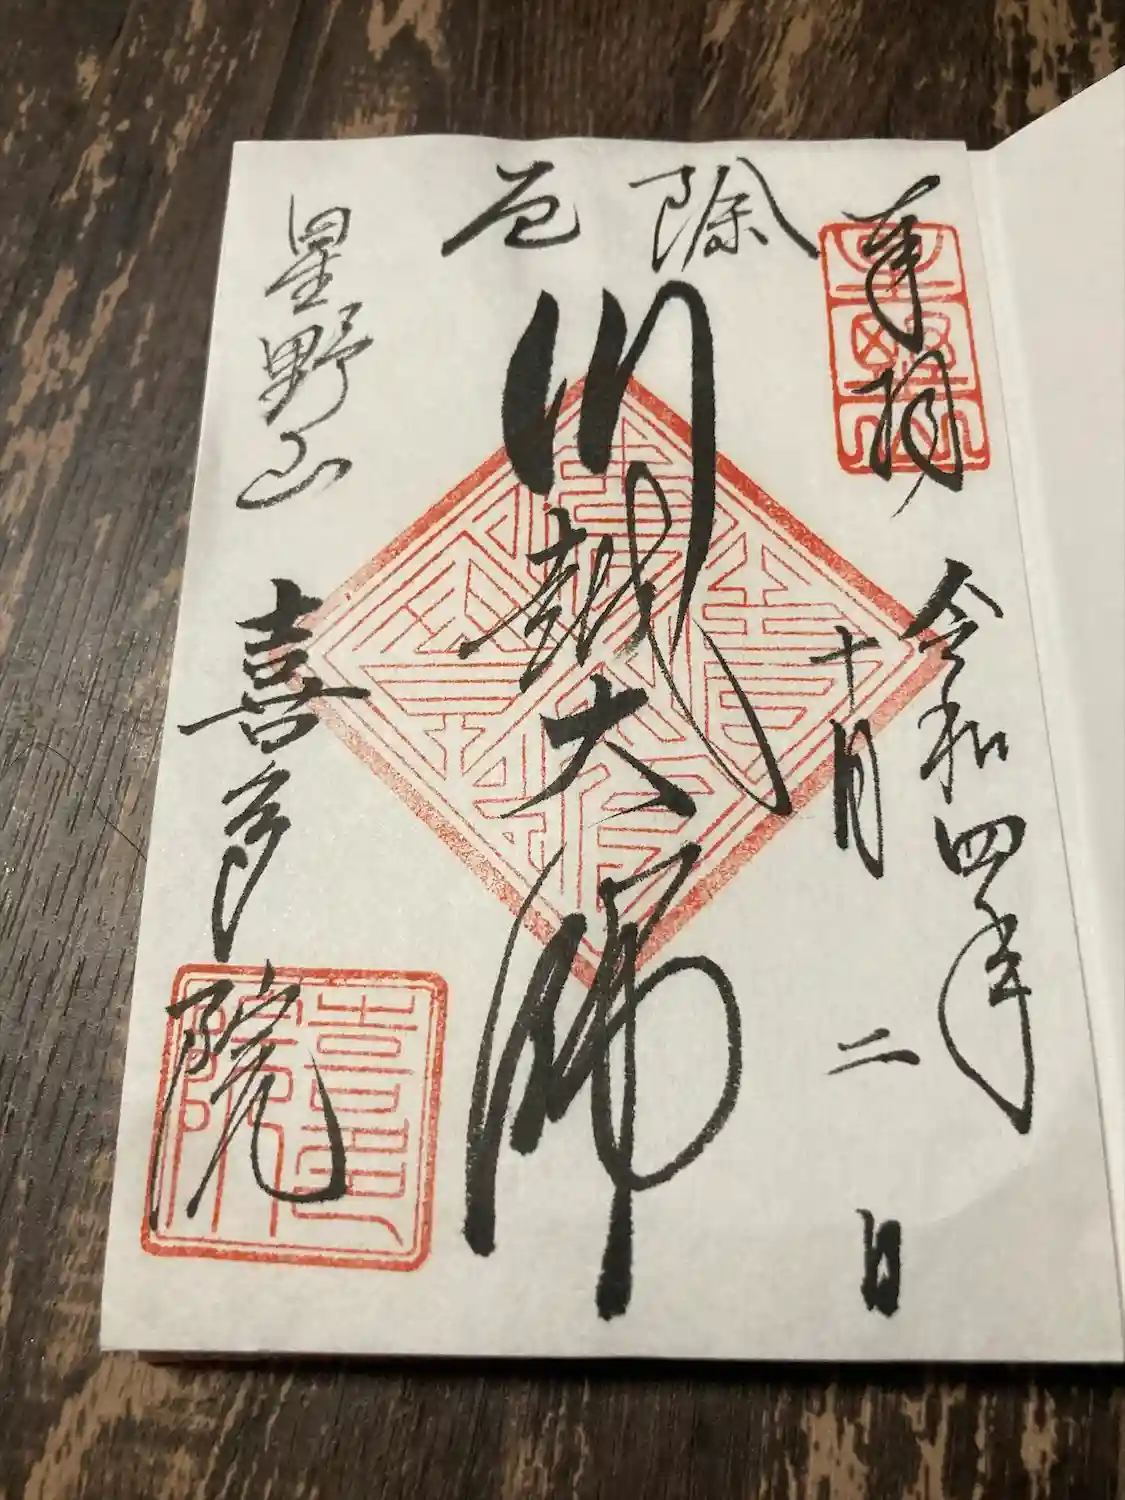 奉拝
令和四年
十月二日
除厄
川越大師
星野山
喜多院